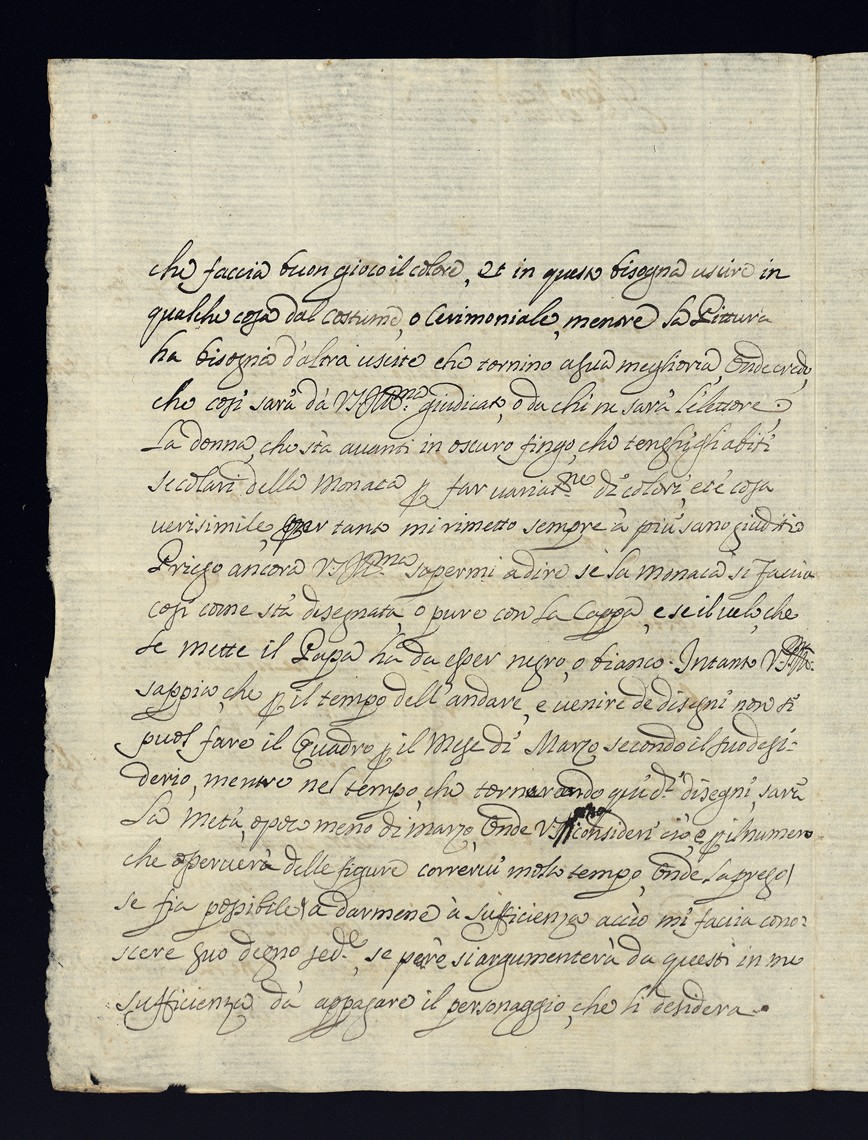 che faccia buon gioco il colore, et in questo bisogna uscire in
qualche cosa dal costume, o Cerimoniale, mentre la Pittura
ha bisogna d'altra uscite che tornino a sua meglioria, Onde credo,
che cosi sarà da V.S. Ill.ma giudicato, o da chi ne sarà l'elettore.
La donna, che stà avanti in oscuro fingo, che tenghi gli abiti
secolari della Monaca p far variat.ne di colori, et è cosa
verisimile, per tanto mi rimetto sempre à più sano giuditio
Priego ancora V.S. Ill.ma sapermi a dire se la Monaca si faccia
cosi come stà disegnata, o pure con la Cappa, e se il velo, che
le mette il Papa ha da esser negro, o bianco. Intanto V.S. Ill.ma
sappia, che p il tempo dell'andare, e venire de disegni non si
puol fare il Quadro p il Mese di Marzo secondo il suo desi-
derio, mentre nel tempo, che tornerando qui d.ti disegni, sarà
la metà, o poco meno di marzo, Onde V.S. Ill.ma consideri ciò, e p il numero
che v'è delle figure correrui molto tempo, Onde la prego
se sia possibile a darmene à sufficienza acciò mi faccia cono-
scere suo degno sed.le, se però si argumenterà da questi in me
sufficienza da appagare il personaggio, che li desidera.